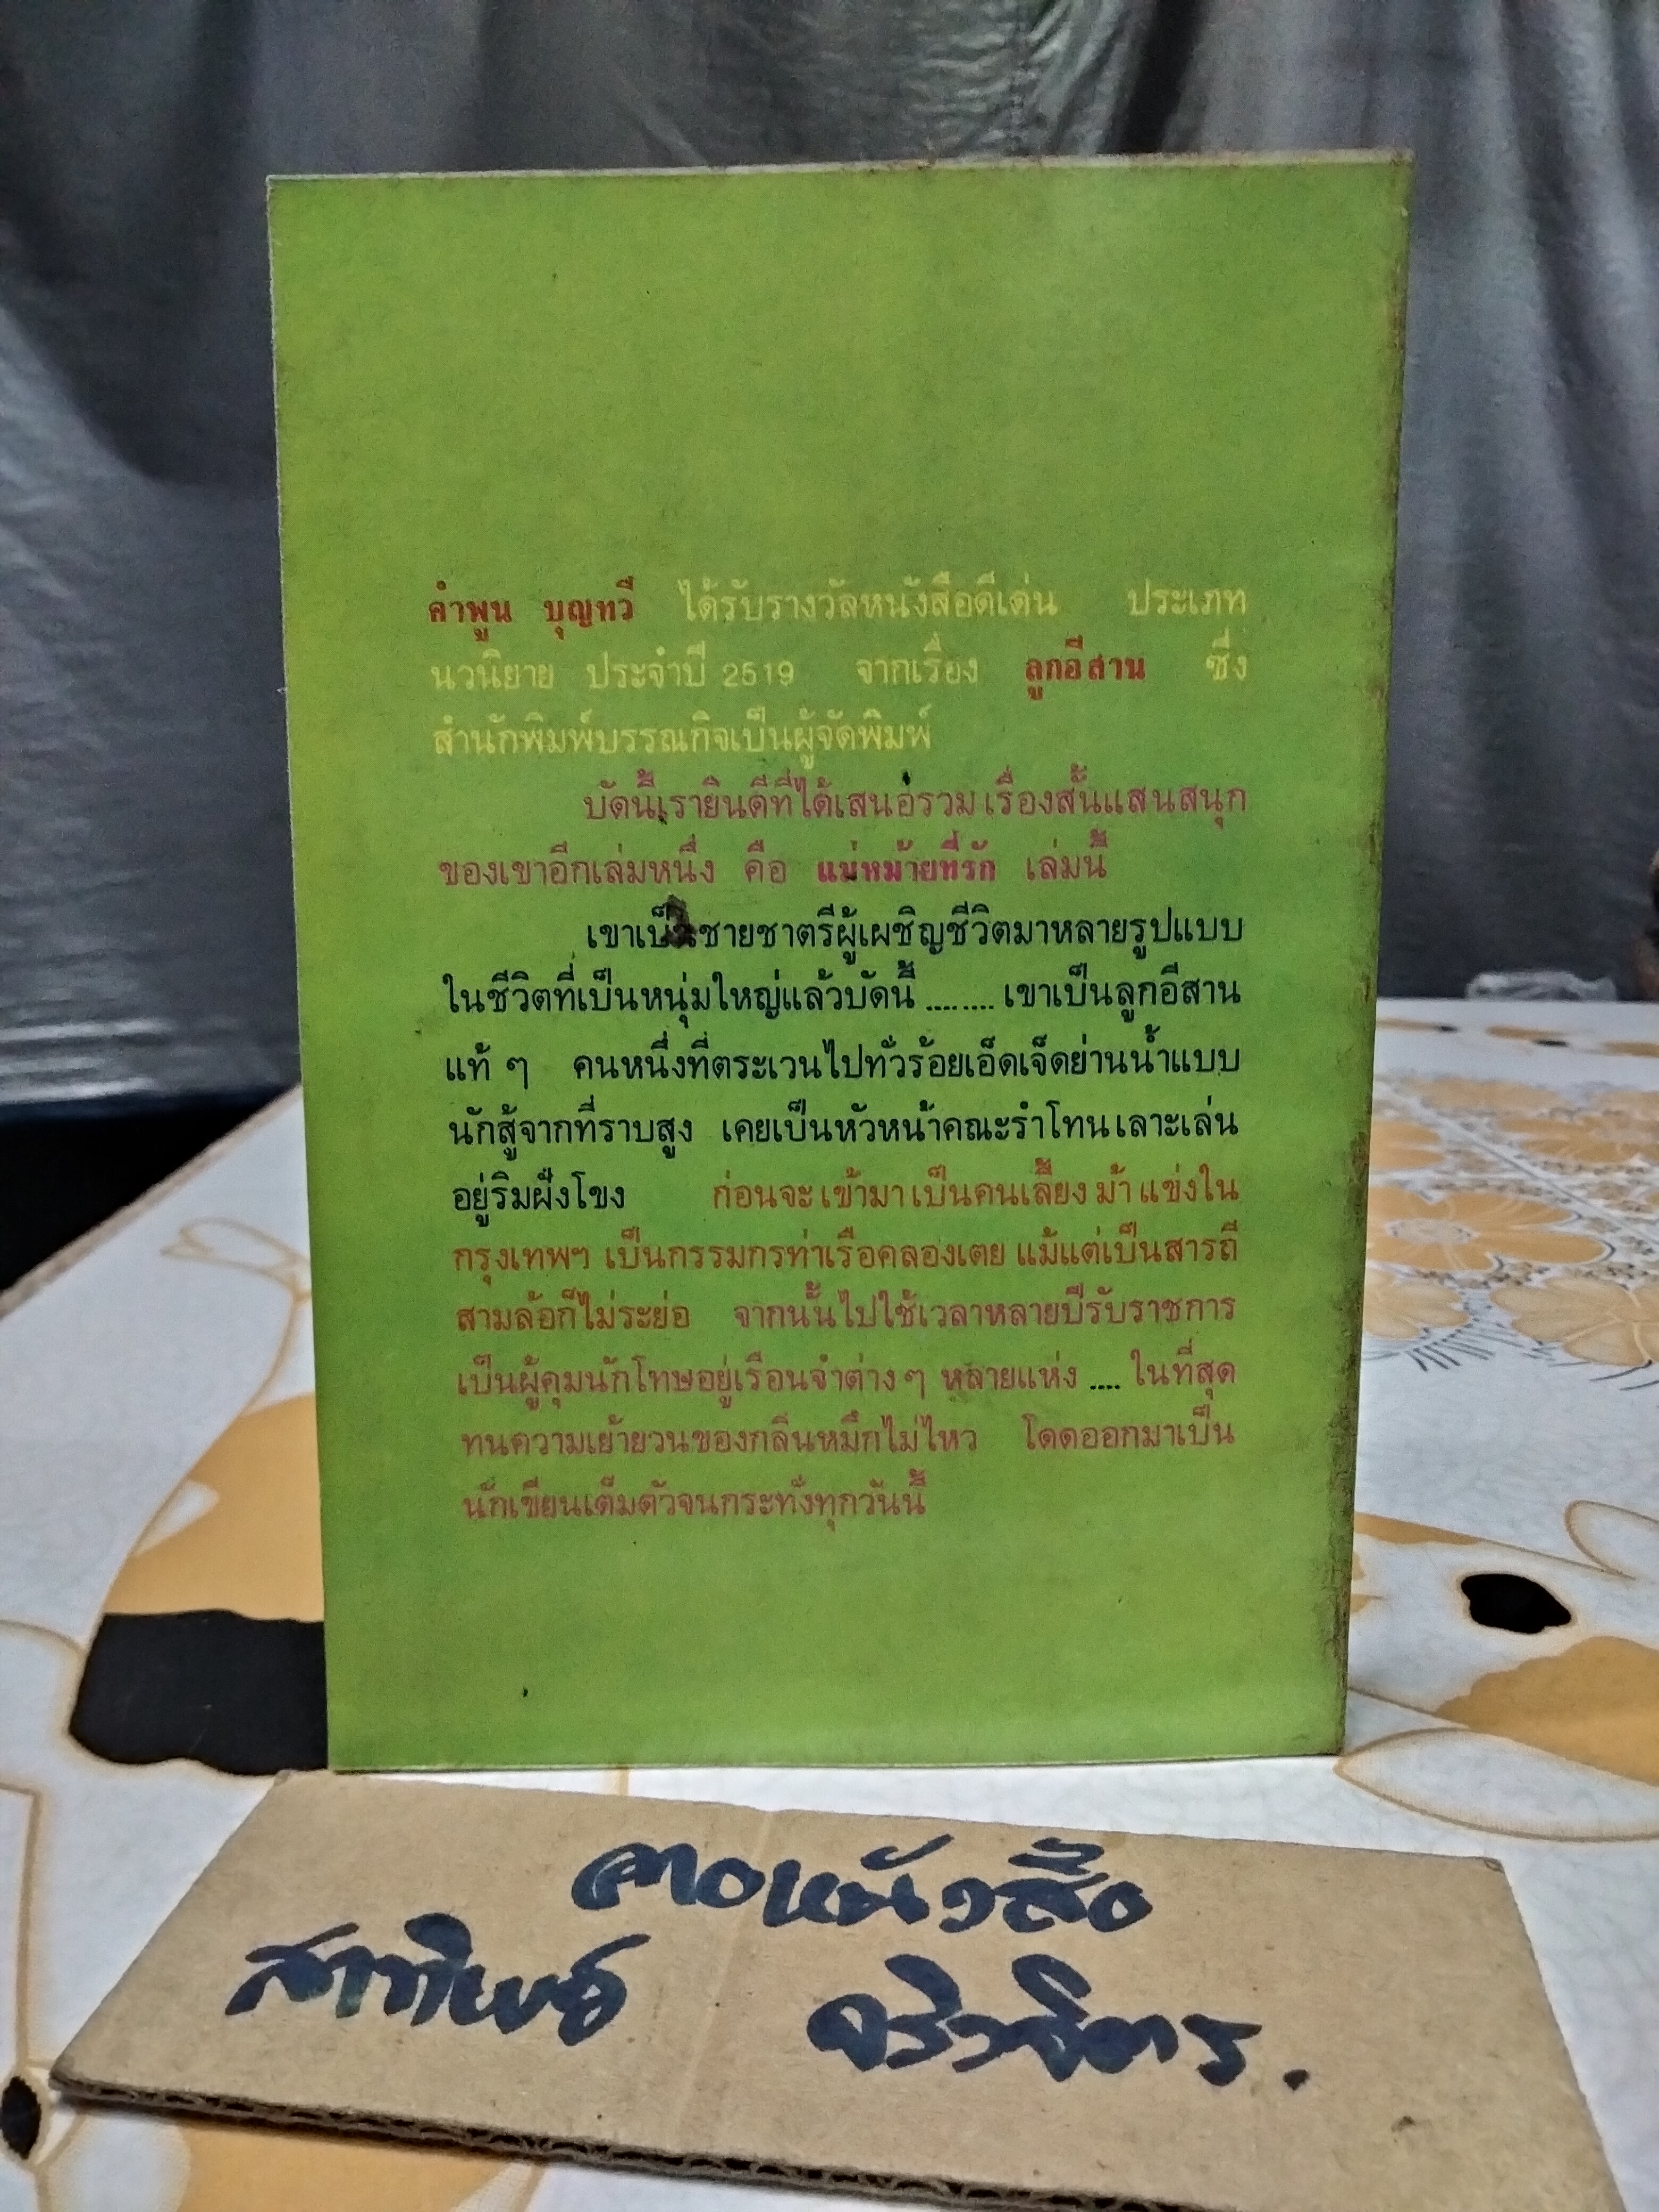 คำพูน บุญทวี ได้รับรางวัลหนังสือดีเด่น ประเภท
นวนิยาย ประจำปี 2519 จากเรื่อง ลูกอีสาน ซึ่ง
สำนักพิมพ์บรรณกิจเป็นผู้จัดพิมพ์
บัดนี้เรายินดีที่ได้เสนอรวมเรื่องสั้นแสนสนุก
ของเขาอีกเล่มหนึ่ง คือ แม่หม้ายที่รัก เล่มนี้
เขาเป็นชายชาตรีผู้เผชิญชีวิตมาหลายรูปแบบ
ในชีวิตที่เป็นหนุ่มใหญ่แล้วบัดนี้ ........ เขาเป็นลูกอีสาน
แท้ ๆ คนหนึ่งที่ตระเวนไปทั่วร้อยเอ็ดเจ็ดย่านน้ำแบบ
นักสู้จากที่ราบสูง เคยเป็นหัวหน้าคณะรำโทนเลาะเล่น
อยู่ริมฝั่งโขง ก่อนจะเข้ามาเป็นคนเลี้ยงม้าแข่งใน
กรุงเทพฯ เป็นกรรมกรท่าเรือคลองเตย แม้แต่เป็นสารถี
สามล้อก็ไม่ระย่อ จากนั้นไปใช้เวลาหลายปีรับราชการ
เป็นผู้คุมนักโทษอยู่เรือนจำต่าง ๆ หลายแห่ง .... ในที่สุด
ทนความเย้ายวนของกลิ่นหมึกไม่ไหว โดดออกมาเป็น
นักเขียนเต็มตัวจนกระทั่งทุกวันนี้